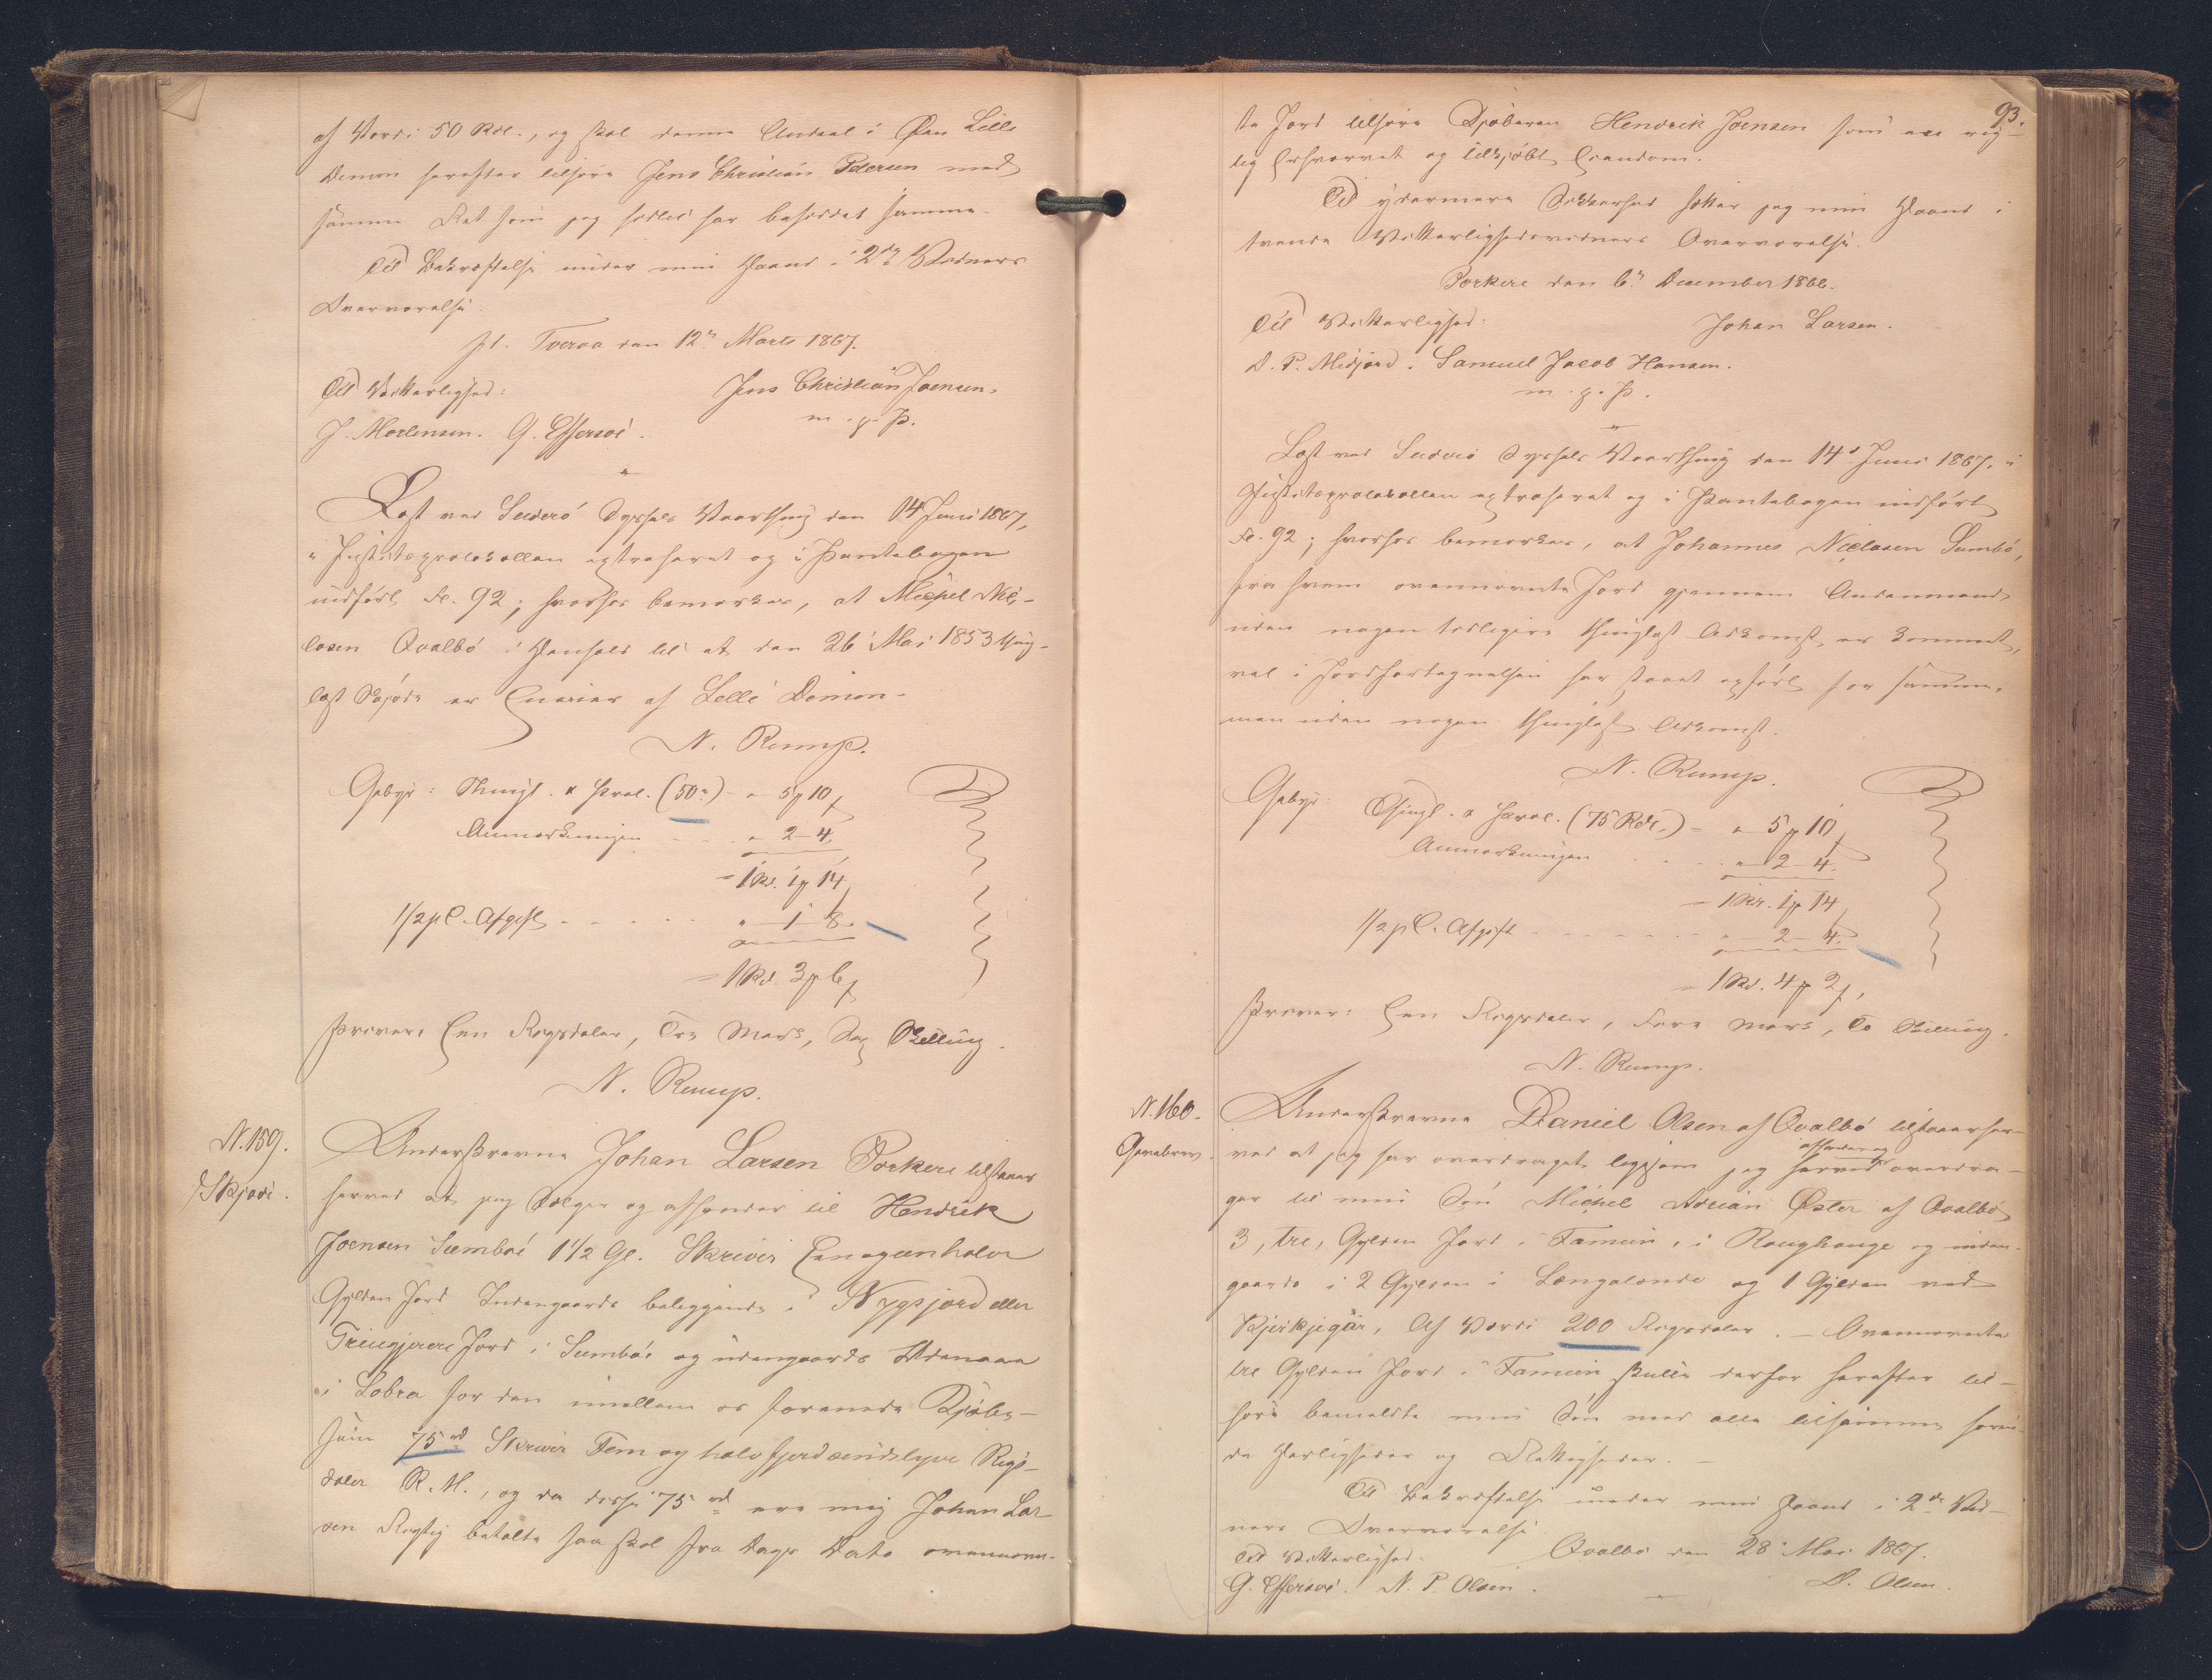 af Værdi 50 Rdl., og skal denne Andeel i Øen Lille
Dimon herefter tilhøre Jens Christian Petersen med
samme Ret som jeg hidtil har besiddet samme.
Til Bekræftelse under min Haand i 2de Vidners
Overværelse.
pt. Tveraa den 12te Marts 1867.
Til Vitterlighed:
Jens Christian Joensen.
m. f. P.
J. Mortensen. G. Effersøe.
Læst ved Suderø Syssels Vaarthing den 14 Juni 1867,
i Justitsprotocollen extraheret og i Pantebogen
indført Fo. 92; hvorhos bemærkes, at Michel Nic-
lasen Qvalbø i Henhold til et den 26 Mai 1853 thing-
læst Skjøde er Eneeier af Lille Dimon.
N. Rump.
Gebyr: Thingl. & Prot. (50rd) - " 5 ß 10
Anmærkningen - - " 2 - 4.
= 1 Rd. 1 ß 14
1/2 pC. Afgift - - - - " 1 8.
= 1 Rd. 3 ß 6
skriver: Een Rigsdaler, Tre Mark, Sex Skilling.
N. Rump.
N. 159.
Skjøde.
Underskrevne Johan Larsen Porkere tilstaaer
herved at jeg sælger og afhænder til Hendrik
Joensen Sumbøe 1 1/2 Gl. Skriver Een og een halv
Gylden Jord Indengaards beliggende i Nygsjord eller
Tringjerere Jord i Sumbøe og udengaards
i Lobra for den imellem os forenede Kjøbe-
sum 75 rd Skriver Fem og halvfjerdsindstyve Rigs-
daler R. M., og da disse 75 rd ere mig Johan Lar-
sen Rigtig betalte saa skal fra Dags Dato ovennævn-
93.
te Jord tilhøre Kjøberen Hendrik Joensen som en rig-
tig Erhvervet og tilkjøbt Eiendom.
Til ydermere Sikkerhed sætter jeg min Haand i
tvende Vitterlighedsvidners Overværelse.
Porkere den 6te December 1866.
Til Vitterlighed:
Johan Larsen.
D. P. Midjord. Samuel Jacob Hansen.
m. f. P.
Læst ved Suderø Syssels Vaarthing den 14de Juni 1867, i
Justitsprotocollen extraheret og i Pantebogen indført
Fo. 92; hvorhos bemærkes, at Johannes Niclasen Sumbø,
fra hvem ovennævnte Jord gjennem Andenmand
uden nogen tidligere thinglæst Adkomst er kommet,
vel i Jordfortegnelsen har staaet opført for samme,
men uden nogen thinglæst Adkomst.
N. Rump.
Gebyr: Thingl. & Prot. (75 Rdl.) - " 5 ß 10
Anmærkningen - - - " 2 - 4.
= 1 Rd. 1 ß 14
1/2 pC. Afgift - - - - " 2 - 4.
= 1 Rd. 4 ß 2,
skriver: Een Rigsdaler, Fire Mark, To Skilling.
N. Rump.
N. 160.
Gavebrev.
Underskrevne Daniel Olsen af Qvalbø tilstaaer her-
ved at jeg har overdraget ligesom jeg herved afhænder og overdra-
ger til min Søn Michel Adrian Øster af Qvalbø
3, tre, Gylden Jord i Famein, i Roughouge og inden-
gaards i 2 Gylden i Længelende og 1 Gylden ved
Kjerkjegär, Af Værdi 200 Rigsdaler. - Ovennævnte
tre Gylden Jord i Famein skulle derfor herefter til-
høre bemeldte min Søn med alle tilsammen høren-
de Herligheder og Rettigheder. -
Til Bekræftelse under min Haand i 2de Vid-
ners Overværelse
Qvalbø den 28 Mai 1867.
Til Vitterlighed.
D. Olsen.
G. Effersøe. N. P. Olsen.